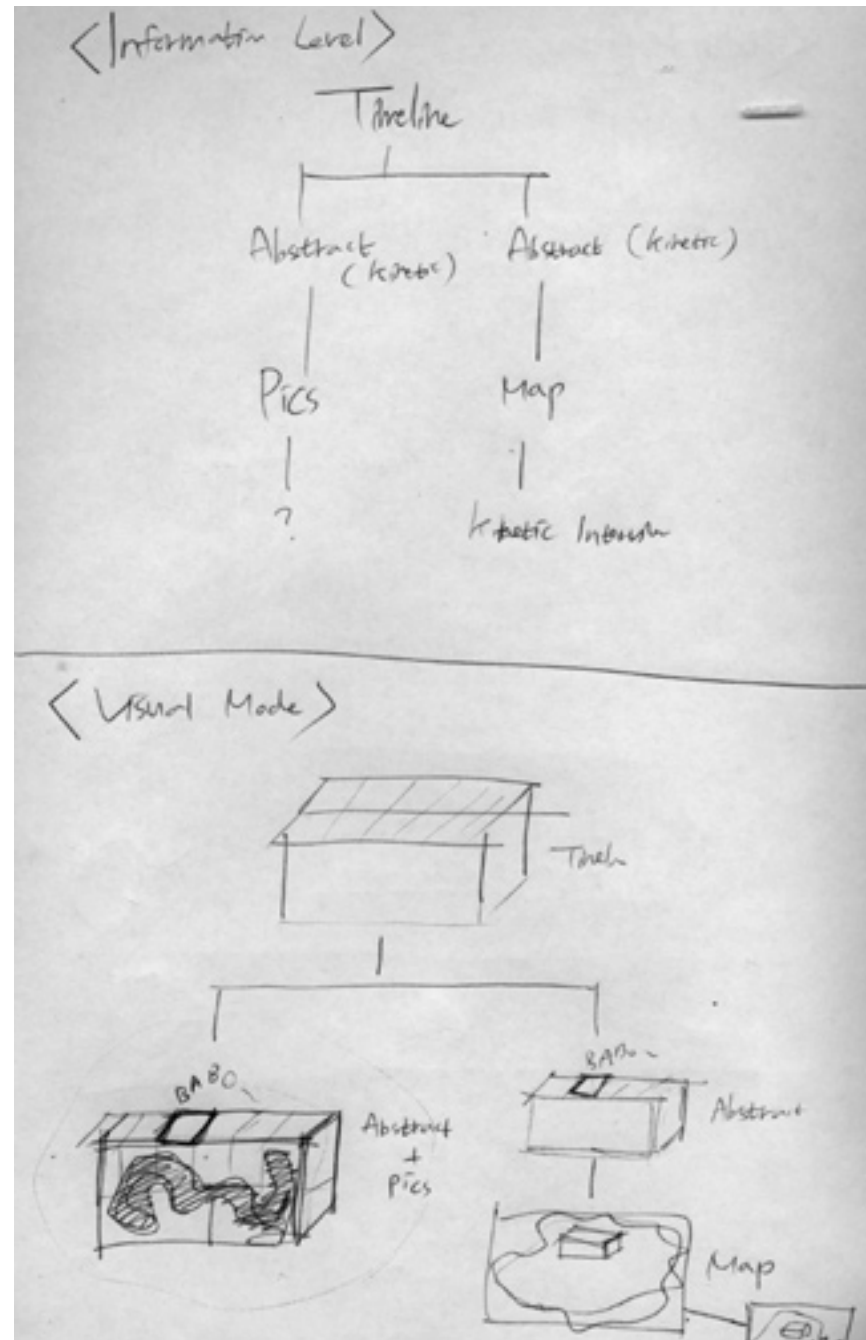 <Information Level>
Timeline
Abstract (kinetic) Abstract (kinetic)
Pics Map
?
kinetic
<Visual Mode>
BABO BABO
Abstract + Pics Abstract
Map